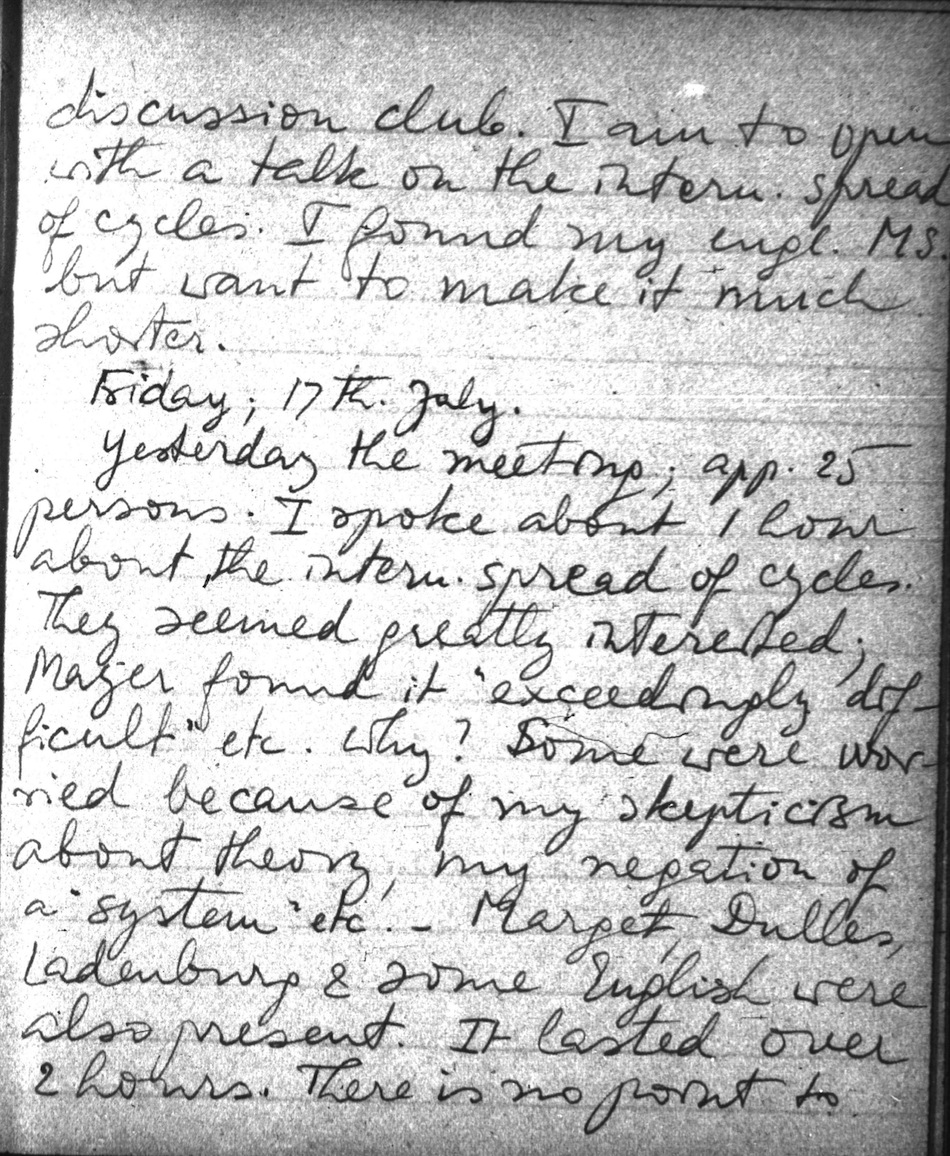 discussion club. I am to open
with a talk on the intern. spread
of cycles. I found my engl. MS.
but want to make it much
shorter.
Friday, 17th. July.
Yesterday the meeting; app. 25
persons. I spoke about 1 hour
about the intern. spread of cycles.
They seemed greatly interested;
Mayer found it "exceedingly dif-
ficult" etc. Why? Some were wor-
ried because of my skepticism
about theory, my negation of
a "system" etc. - Marget, Dulles,
Ladenburg & some English were
also present. It lasted over
2 hours. There is no point to